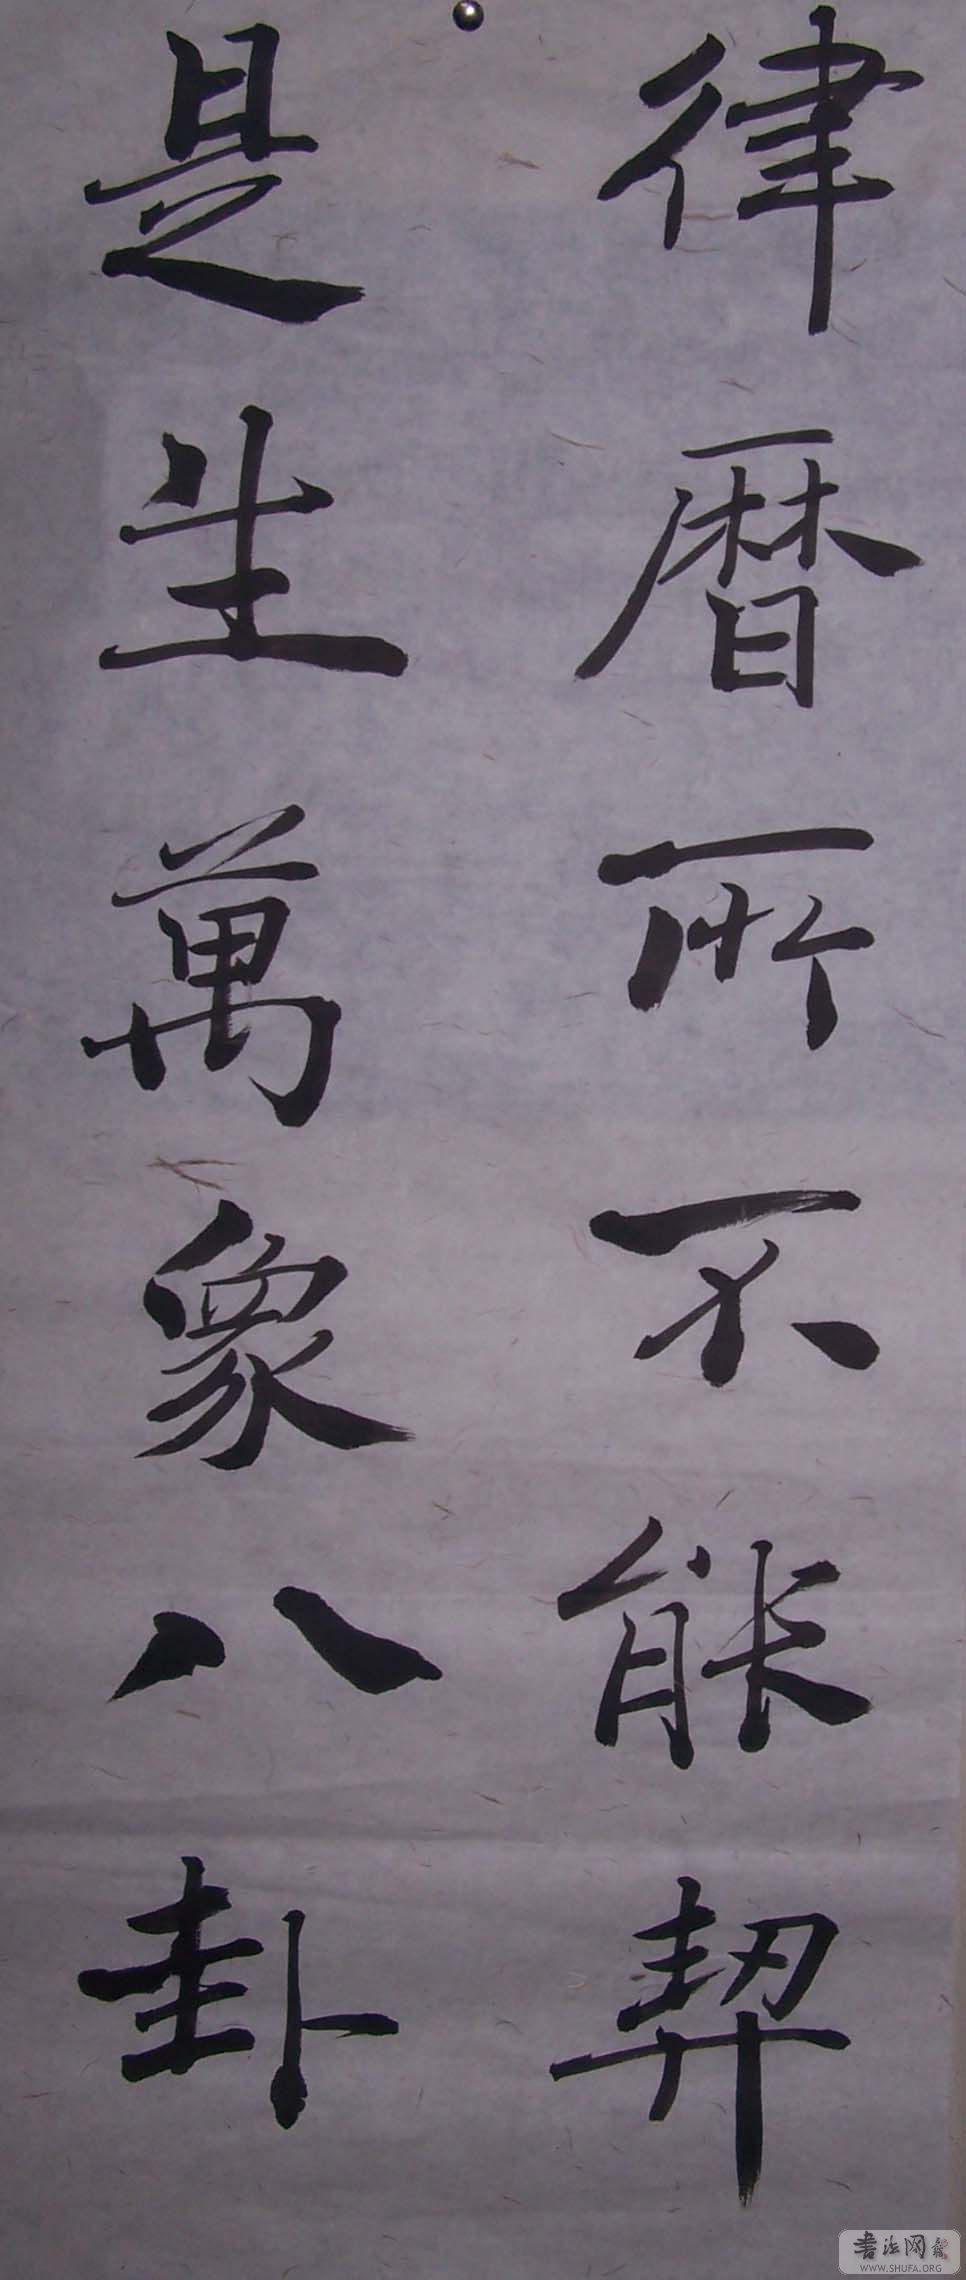 律曆所不能契
是生萬象八卦
書法网
WWW.SHUFA.ORG